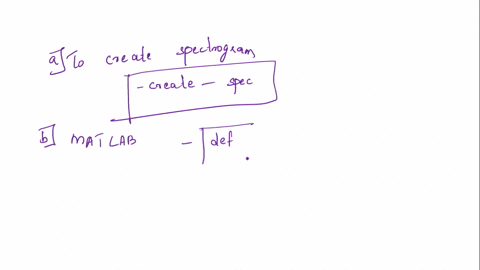 a] To create spectrogram
- create - spec
b] MATLAB - def